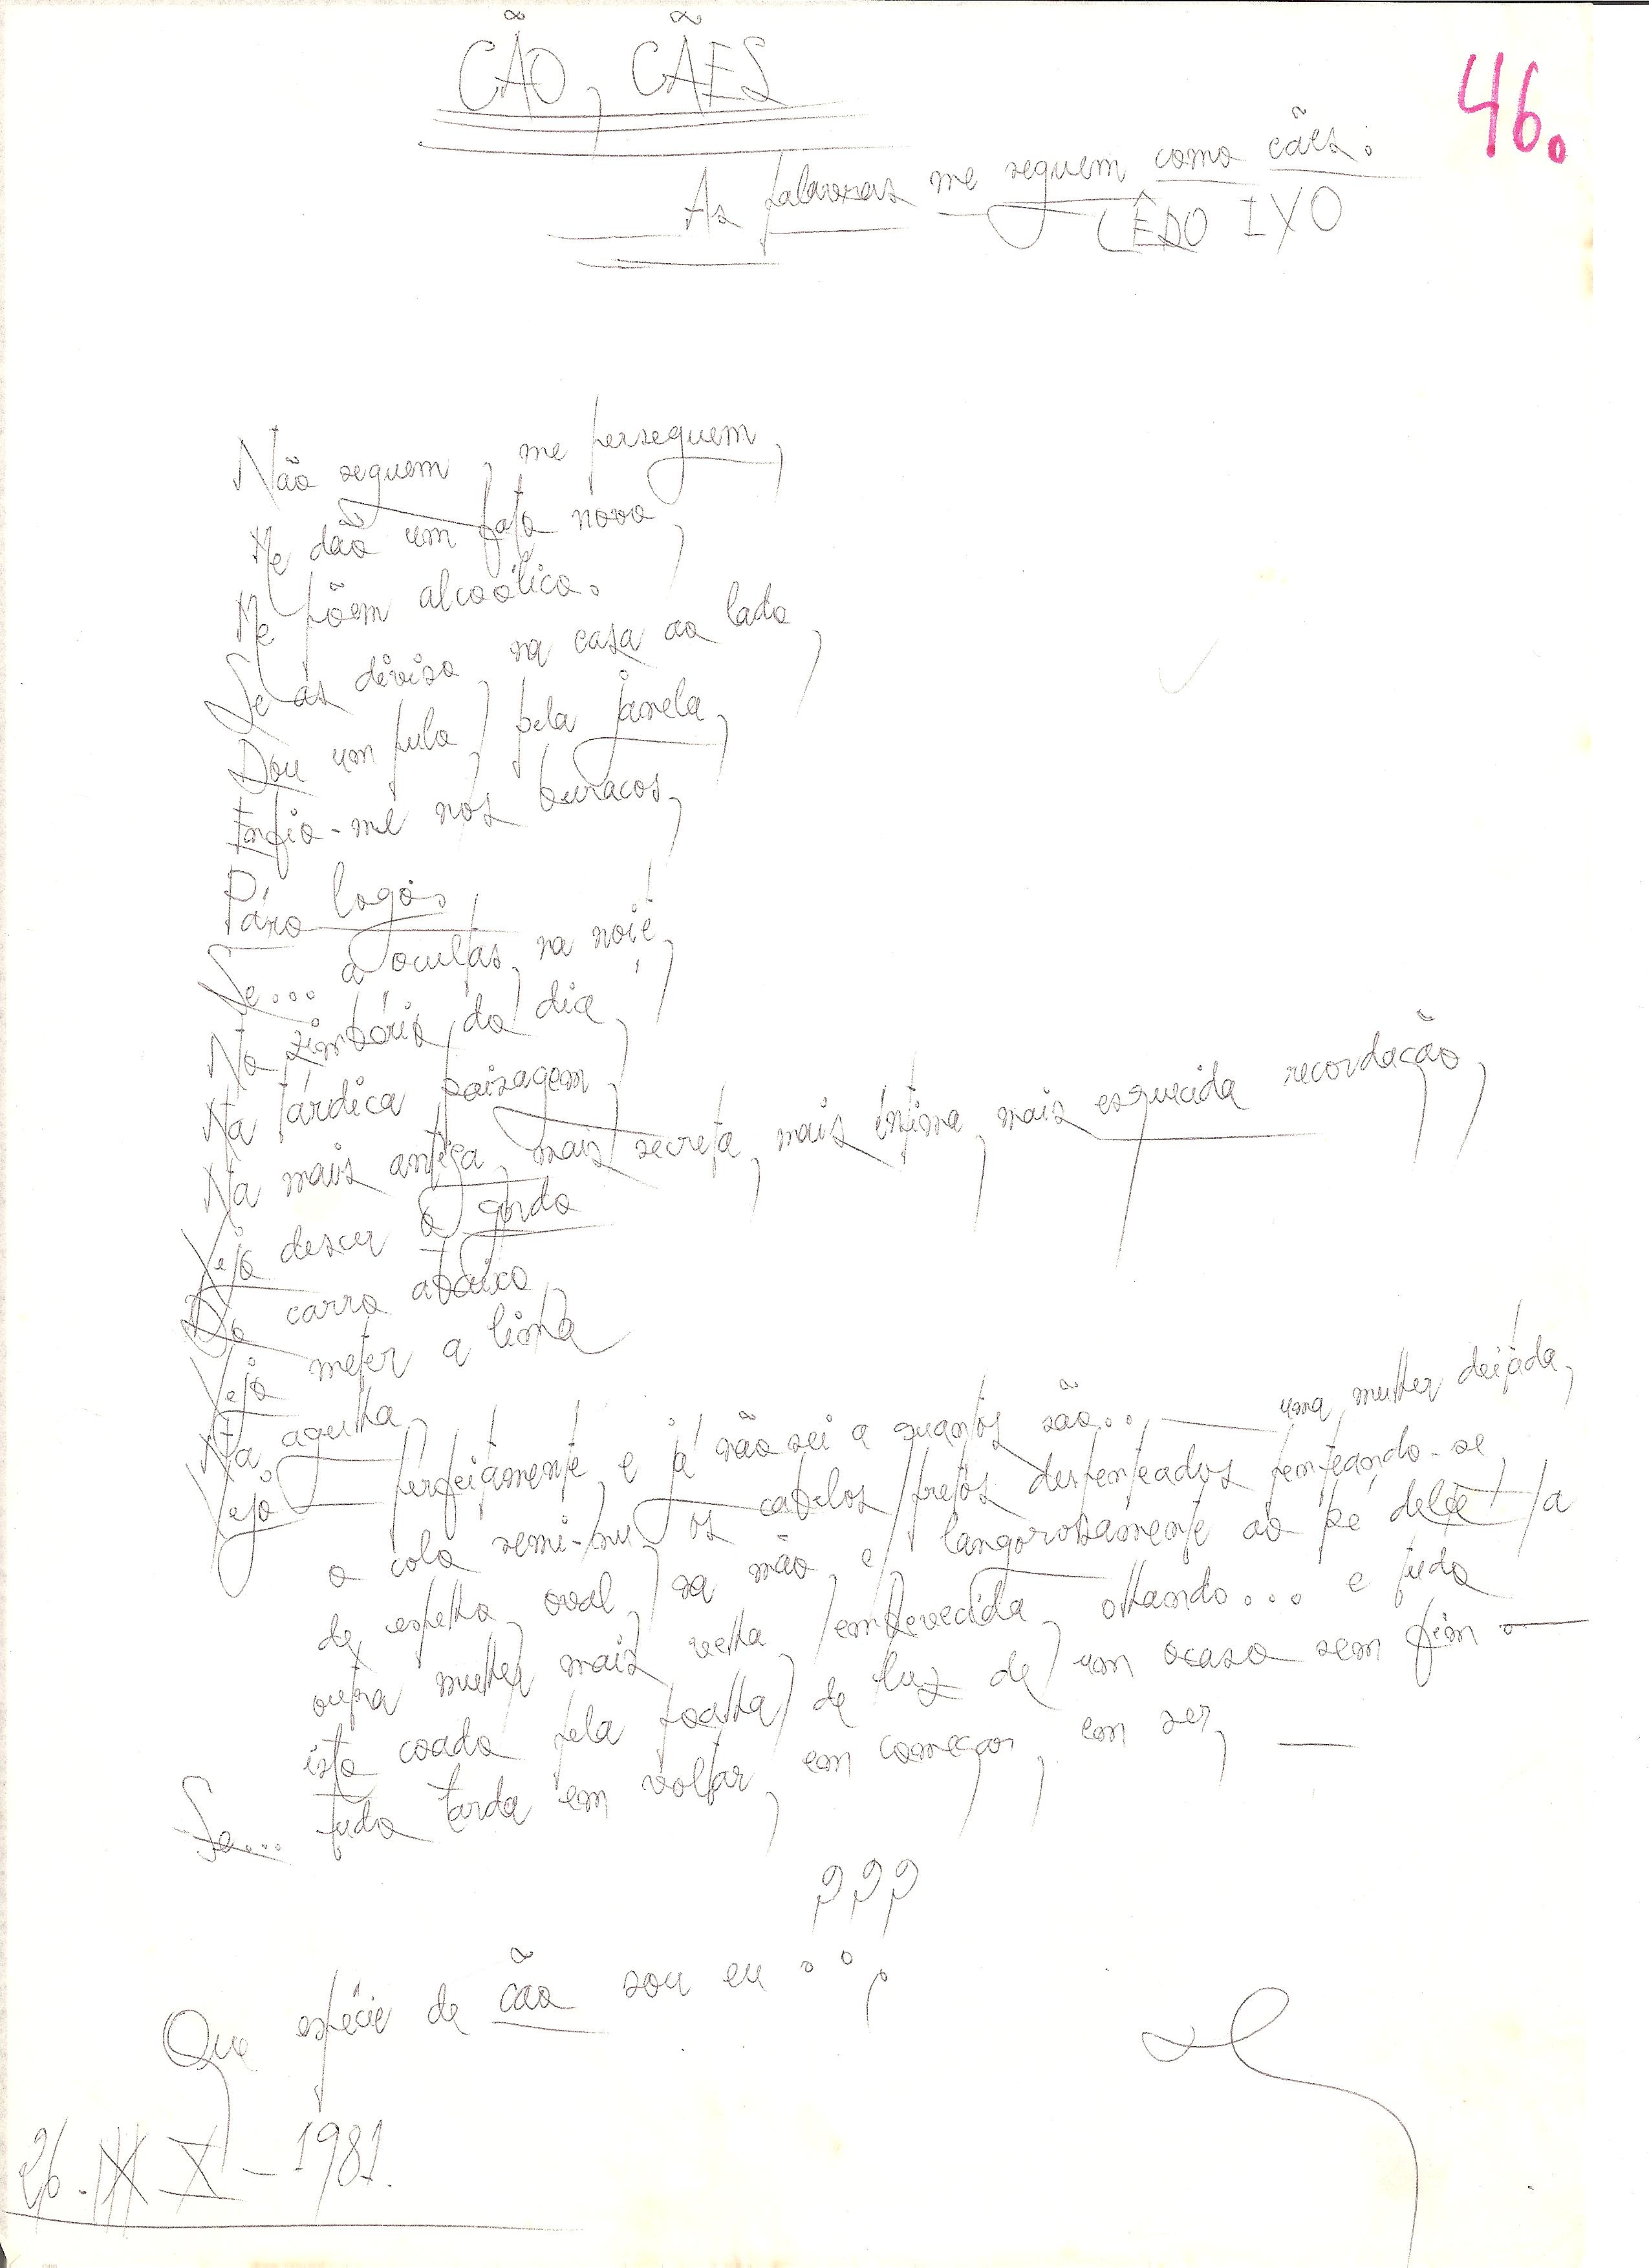 46.
CÃO, CÃES
As palavras me seguem como cães.
LÊDO IVO
Não seguem, me perseguem,
Me dão um fato novo,
Me põem alcoólico.
Se as diviso, na casa ao lado,
Dou um pulo, pela janela,
Enfio-me nos buracos,
Páro logo.
Se... a ocultas, na noite,
No zimbório do dia,
Na tárdica paisagem,
Na mais antiga, mais secreta, mais íntima, mais esquecida recordação,
Vejo descer o gordo
Do carro abaixo,
Vejo meter a linha
Na agulha,
Vejo — perfeitamente, e já não sei a quantos são... — uma mulher deitada,
o colo semi-nu, os cabelos pretos despenteados penteando-se,
de espelho, oval, na mão, e, langorosamente ao pé dela
outra mulher mais velha, embevecida, olhando... e tudo
isto coado pela toalha de luz de um ocaso sem fim —
Se... tudo tarda em voltar, em começar, em ser, —
???
Que espécie de cão sou eu...
26. X - 1981.